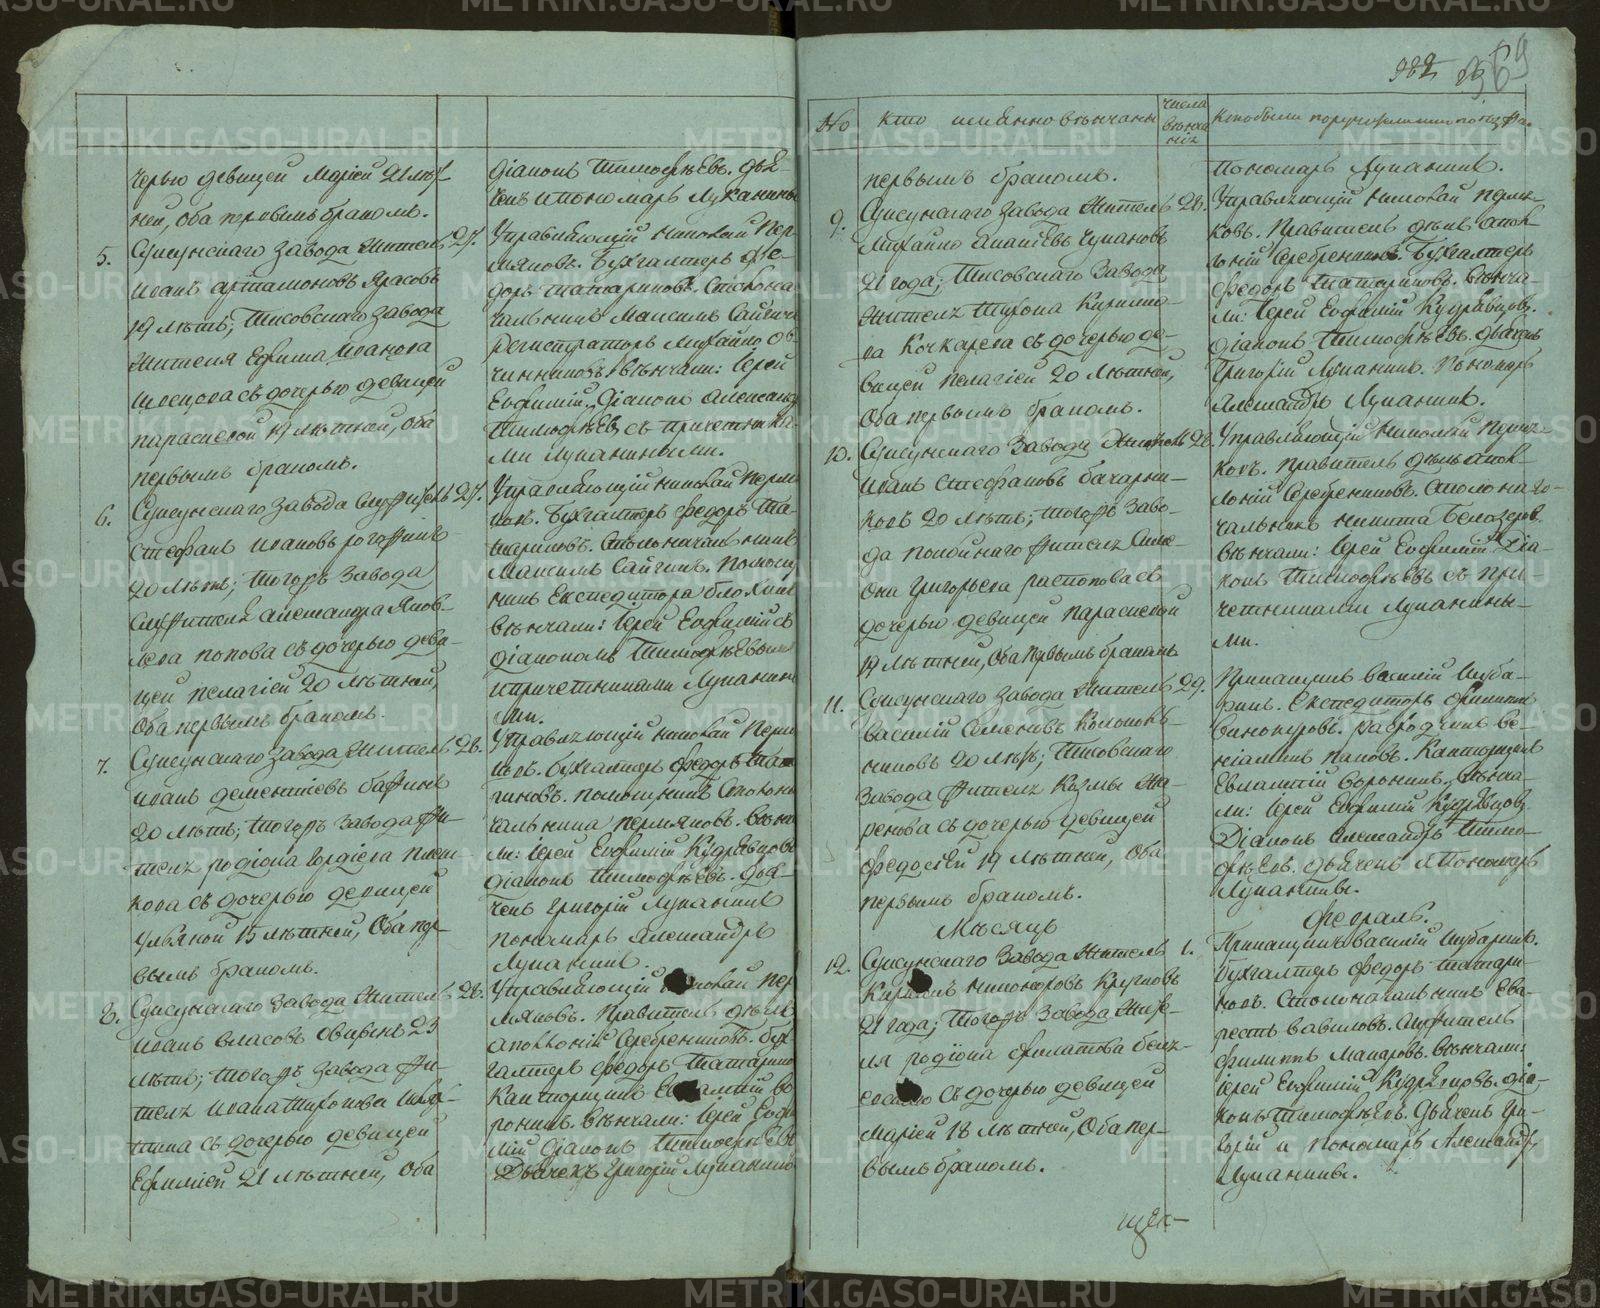 черью девицей Маріей 21 лѣт-
ней, оба первымъ бракомъ.
5. Сысунскаго завода житель 27.
Иванъ Артамоновъ Власовъ
19 лѣтъ; Тисовскаго завода
жителя Ефима Иванова
съ дочерью девицей
Параскевой 19 лѣтней, оба
первымъ бракомъ.
6. завода служитель 27.
Стефанъ Ивановъ Рогожинъ
20 лѣтъ; тогожъ завода
служителя Александра Яков-
лева Попова съ дочерью деви-
цей Пелагіей 20 лѣтней,
оба первымъ бракомъ.
7. завода житель 28.
Иванъ Дементіевъ Бажинъ
20 лѣтъ; тогожъ завода жи-
теля Родіона Гордѣева
съ дочерью девицей
Ульяной 15 лѣтней, оба пер-
вымъ бракомъ.
8. завода житель 28.
Иванъ Власовъ 23
лѣтъ; тогожъ завода жи-
теля Ивана Тихонова
съ дочерью девицей
Ефиміей 21 лѣтней, оба
Діаконъ Тимофѣевъ. Дья-
чекъ и пономарь Луканины
Управляющій Николай Пер-
мяковъ. Бухгалтеръ Фе-
доръ Татариновъ. Столона-
чальникъ Максимъ Сайгинъ
Регистраторъ Михайло Ов-
чинниковъ вѣнчали: Іерей
Евфимій, Діаконъ Александръ
Тимофѣевъ съ причетника-
ми Луканиными.
Управляющій Николай Пермя-
ковъ. Бухгалтеръ Федоръ Та-
тариновъ. Столоначальникъ
Максимъ Сайгинъ. Помощ-
никъ Експедитора Блохинъ
вѣнчали: Іерей Евфимій съ
Діакономъ Тимофѣевымъ
и причетниками Луканины-
ми.
Управляющій Николай Пермя-
ковъ. Бухгалтеръ Федоръ Тата-
риновъ. Помощникъ Столона-
чальника Пермяковъ. Вѣнча-
ли: Іерей Евфимій Кудрявцовъ
Діаконъ Тимофѣевъ. Дья-
чекъ Григорій Луканинъ
Пономарь Александръ
Луканинъ.
Управляющій Николай Пер-
мяковъ. Правитель дѣлъ
Аполлоній Серебренниковъ. Бух-
галтеръ Федоръ Татариновъ
Канторщикъ Евлампій Во-
ронинъ. Вѣнчали: Іерей Евфи-
мій Діаконъ Тимофѣевъ
Дьячекъ Григорій Луканинъ
982 369
No кто имянно вѣнчаны числа вѣнчанія кто были поручителями
первымъ бракомъ.
9. завода житель 28.
Михайло Ананіевъ Чупановъ
21 года; Тисовскаго завода
жителя Тихона Кирило-
ва Кочкарева съ дочерью де-
вицей Пелагіей 20 лѣтней,
оба первымъ бракомъ.
10. завода житель 28.
Иванъ Стефановъ Бачарни-
ковъ 20 лѣтъ; тогожъ заво-
да покойнаго жителя Симе-
она Григорьева Распопова съ
дочерью девицей Параскевой
19 лѣтней, оба первымъ бракомъ
11. завода житель 29.
Василій Семеновъ Колоколь-
никовъ 20 лѣтъ; Тисовскаго
завода жителя Козмы Жа-
ренова съ дочерью девицей
Федосьей 19 лѣтней, оба
первымъ бракомъ.
Мѣсяцъ
12. завода житель 1.
Никоноровъ Кругловъ
21 года; тогожъ завода жите-
ля Родіона Филатова
съ дочерью девицей
Маріей 18 лѣтней, оба пер-
вымъ бракомъ.
Пономарь Луканинъ.
Управляющій Николай Пермя-
ковъ. Правитель дѣлъ Апол-
лоній Серебренниковъ. Бухгалтеръ
Федоръ Татариновъ. Вѣнча-
ли: Іерей Евфимій Кудрявцовъ.
Діаконъ Тимофѣевъ. Дьячекъ
Григорій Луканинъ. Пономарь
Александръ Луканинъ.
Управляющій Николай Пермя-
ковъ. Правитель дѣлъ Апол-
лоній Серебренниковъ. Столона-
чальникъ Никита Белозеровъ.
вѣнчали: Іерей Евфимій Діа-
конъ Тимофѣевъ съ при-
четниками Луканины-
ми.
Прикащикъ Василій Шуба-
ринъ. Експедиторъ Филиппъ
Винокуровъ. Расходчикъ Ве-
ніаминъ Паповъ. Канторщикъ
Евлампій Воронинъ. Вѣнча-
ли: Іерей Евфимій Кудрявцовъ
Діаконъ Александръ Тимо-
фѣевъ. Дьячекъ и Пономарь
Луканины.
Февраль.
Прикащикъ Василій Шубаринъ.
Бухгалтеръ Федоръ Татари-
новъ. Столоначальникъ Ева-
рестъ Вавиловъ. Служитель
Филиппъ Макаровъ. Вѣнчали:
Іерей Евфимій Кудрявцовъ. Діа-
конъ Тимофѣевъ. Дьячекъ Гри-
горій и Пономарь Александръ
Луканины.